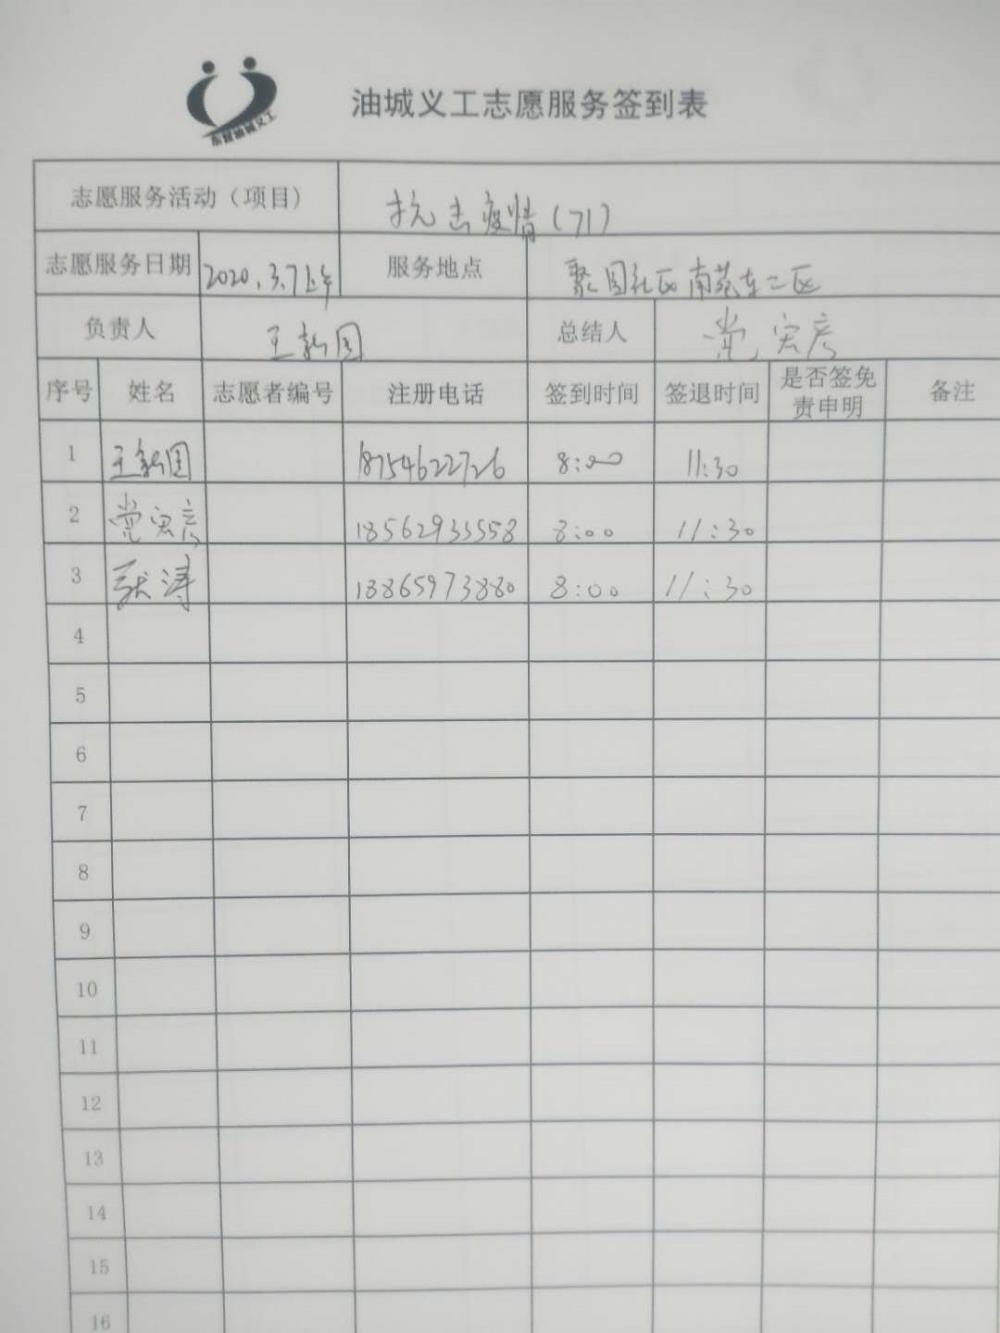 东营油城义工
油城义工志愿服务签到表
志愿服务活动（项目） 抗击疫情(71)
志愿服务日期 2020.3.7上午 服务地点 聚园社区南苑东二区
负责人 王新国 总结人 党宏彦
序号 姓名 志愿者编号 注册电话 签到时间 签退时间 是否签免责申明 备注
1 王新国 18754622726 8:00 11:30
2 党宏彦 18562933558 8:00 11:30
3 涛 18865973880 8:00 11:30
4
5
6
7
8
9
10
11
12
13
14
15
16